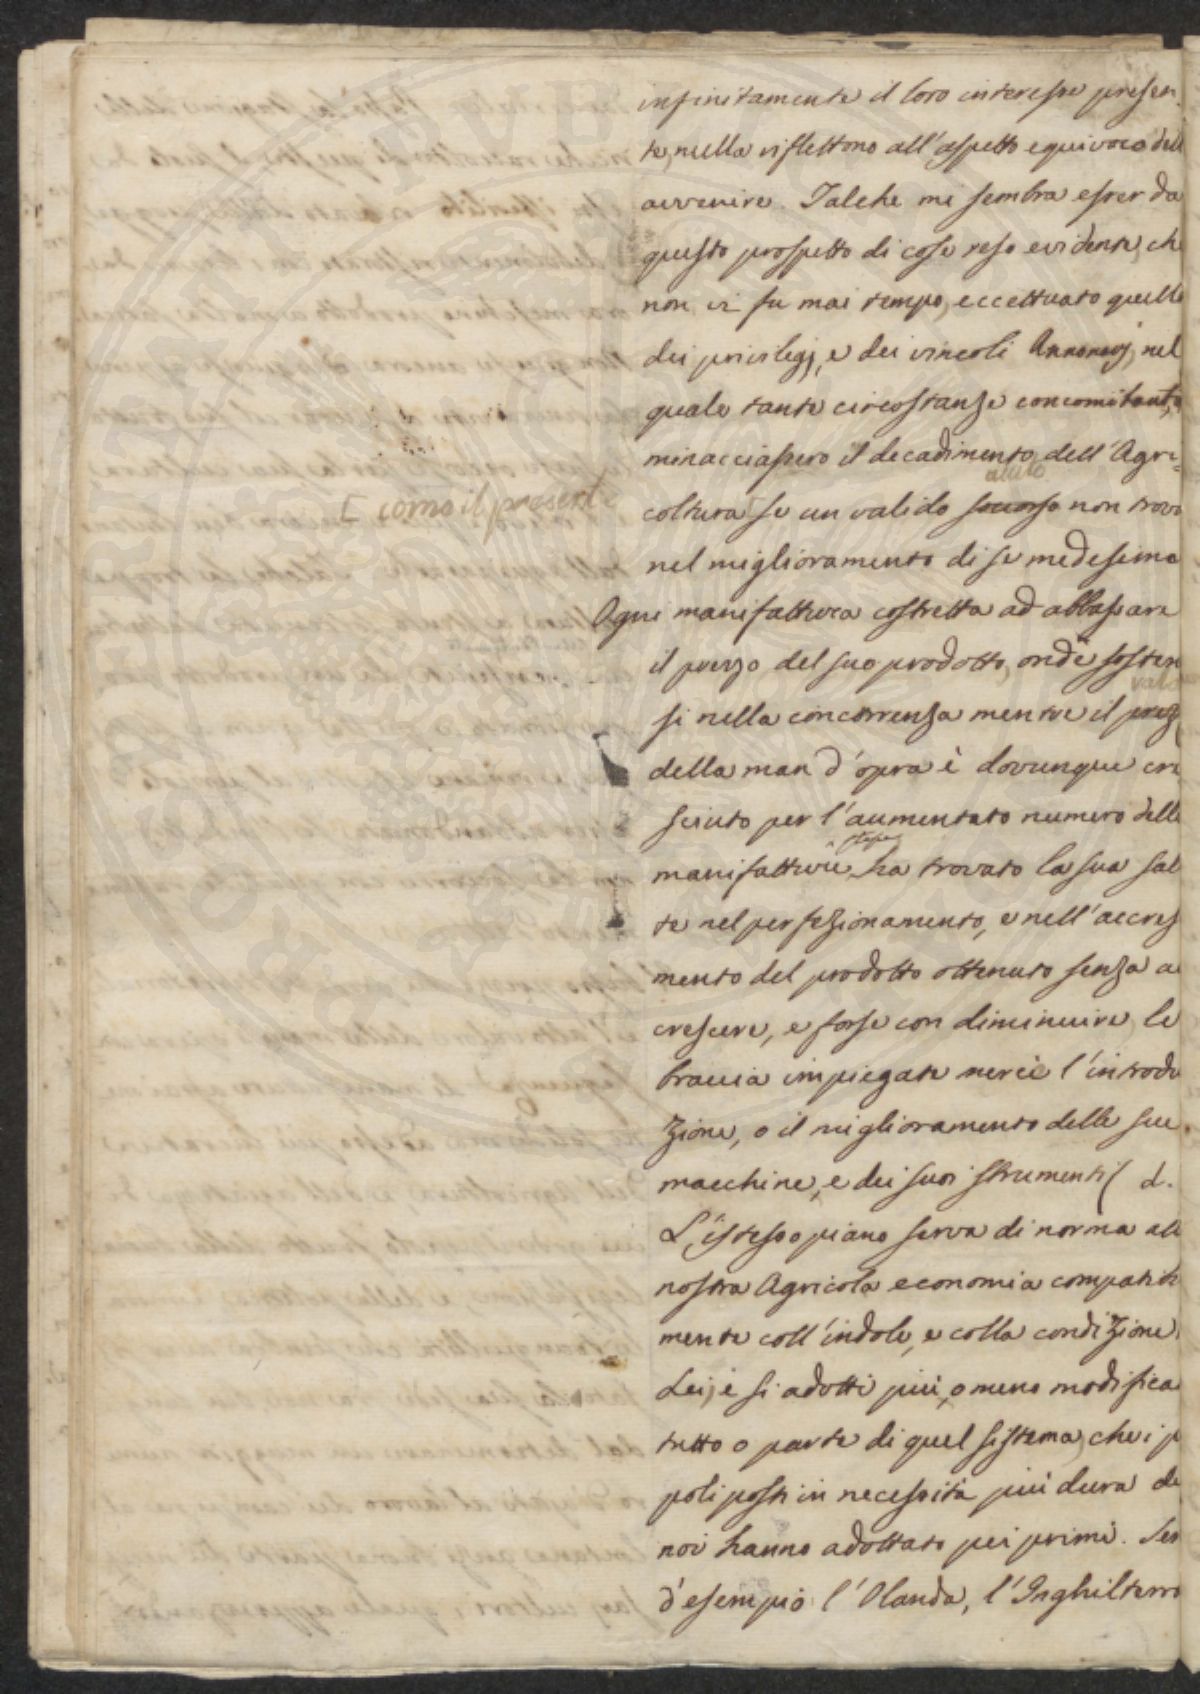 infinitamente il loro interesse presen
te, nulla riflettono all'aspetto equivoco dell
avvenire. Talche mi sembra esser da
questo prospetto di cose reso evidente, ch
non vi fu mai tempo, eccettuato quello
dei privilegj, e dei vincoli Annonarj, nel
quale tante circostanze concomitanti,
minacciassero il decadimento dell'Agri=
aiuto
[ come il presente
coltura [ se un valido soccorso non trova
nel miglioramento di se medesima
Ogni manifattura costretta ad abbassare
il prezzo del suo prodotto, onde sosten
valo
si nella concorrenza mentre il prezz
della man d'opra è dovunque cre
sciuto per l'aumentato numero delle
stesse
manifatture ha trovato la sua sal
te nel perfezionamento, e nell'accresi
mento del prodotto ottenuto senza a
crescere, e forse con diminuire le
braccia impiegate mercè l'introdu
zione, o il miglioramento delle sue
macchine, e dei suoi strumenti ( d.
L'istesso piano serva di norma all
nostra Agricola economia compatibi
mente coll'indole, e colla condizione
Lei, e si adotti più, o meno modifica
tutto o parte di quel sistema, che i p
poli posti in necessità più dura de
noi hanno adottato pei primi. Ser
d'esempio l'Olanda, l'Inghilterra